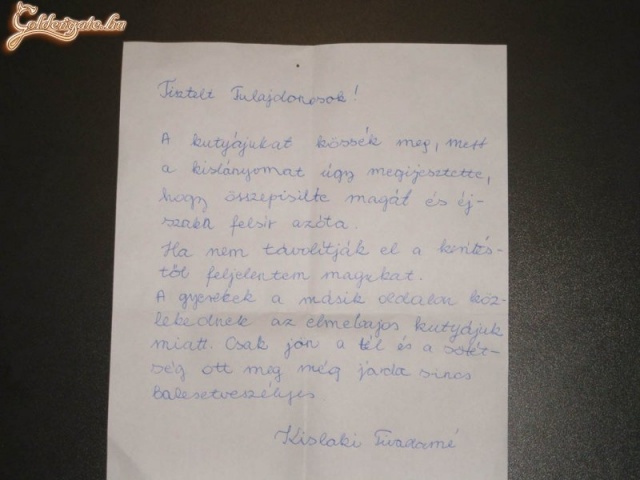 Goldengate.hu
Tisztelt Tulajdonosok!
A kutyájukat kössék meg, mert
a kislányomat úgy megijesztette,
hogy összepisilte magát és éj-
szaka felsír azóta.
Ha nem távolítják el a kerítés-
től feljelentem magukat.
A gyerekek a másik oldalon köz-
lekednek az elmebajos kutyájuk
miatt. Csak jön a tél és a sötét-
ség ott meg még járda sincs
Balesetveszélyes
Kislaki